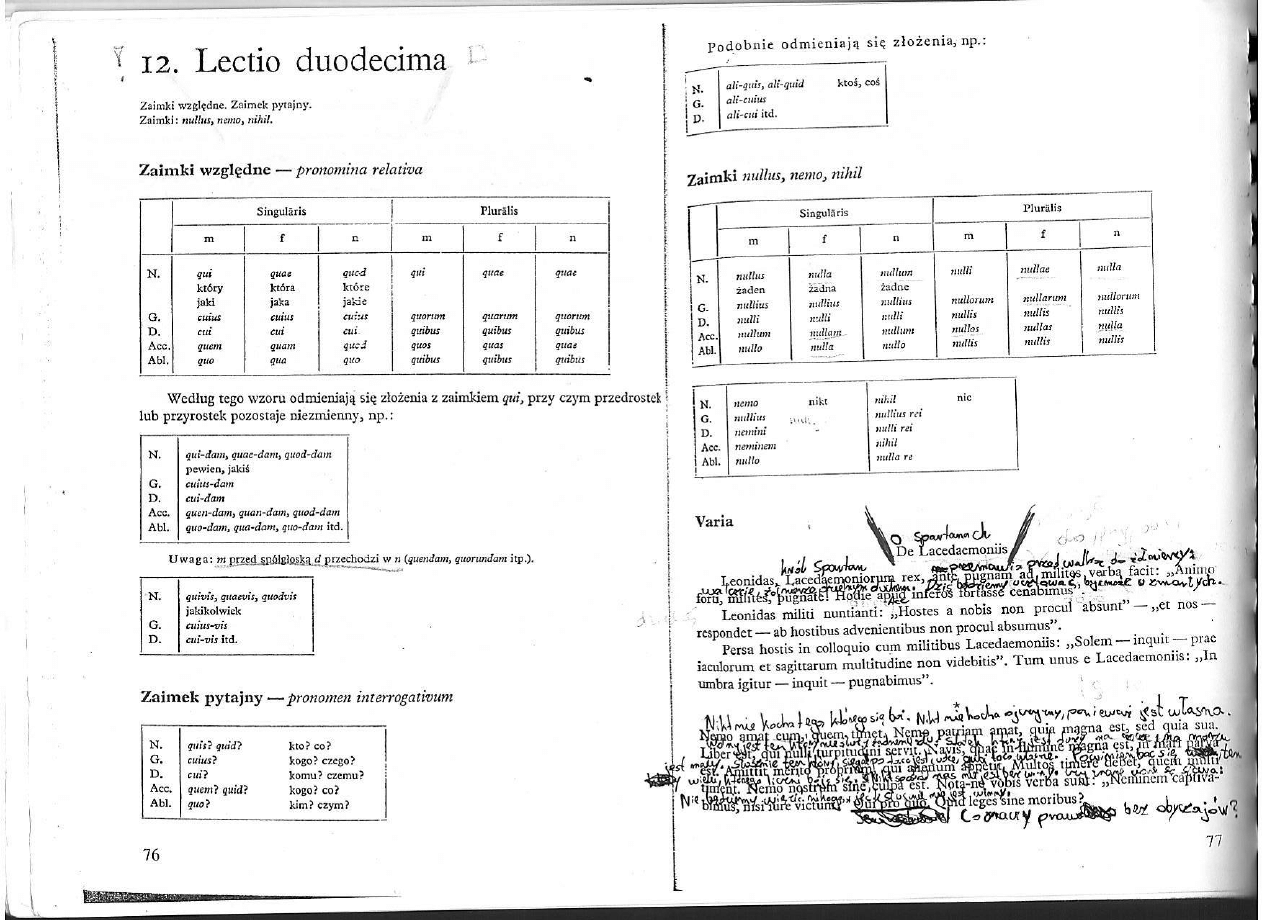 12. Lectio duodecima
Zaimki względne. Zaimek pytajny.
Zaimki: nullus, nemo, nihil.
Zaimki względne — pronomina relativa
Singulāris Plurālis
m f n m f n
N. qui quae quod qui quae quae
który która które
jaki jaka jakie
G. cuius cuius cuius quorum quarum quorum
D. cui cui cui quibus quibus quibus
Acc. quem quam quod quos quas quae
Abl. quo qua quo quibus quibus quibus
Według tego wzoru odmieniają się złożenia z zaimkiem qui, przy czym przedrostek
lub przyrostek pozostaje niezmienny, np.:
N. qui-dam, quae-dam, quod-dam
pewien, jakiś
G. cuius-dam
D. cui-dam
Acc. quen-dam, quan-dam, quod-dam
Abl. quo-dam, qua-dam, quo-dam itd.
Uwaga: m przed spółgłoską d przechodzi w n (quendam, quorundam itp.).
N. quivis, quaevis, quodvis
jakikolwiek
G. cuius-vis
D. cui-vis itd.
Zaimek pytajny — pronomen interrogativum
N. quis? quid? kto? co?
G. cuius? kogo? czego?
D. cui? komu? czemu?
Acc. quem? quid? kogo? co?
Abl. quo? kim? czym?
76
Podobnie odmieniają się złożenia, np.:
N. ali-quis, ali-quid ktoś, coś
G. ali-cuius
D. ali-cui itd.
Zaimki nullus, nemo, nihil
Singulāris Plurālis
m f n m f n
N. nullus nulla nullum nulli nullae nulla
żaden żadna żadne
G. nullius nullius nullius nullorum nullarum nullorum
D. nulli nulli nulli nullis nullis nullis
Acc. nullum nullam nullum nullos nullas nulla
Abl. nullo nulla nullo nullis nullis nullis
N. nemo nikt nihil nic
G. nullius nullius rei
D. nemini nulli rei
Acc. neminem nihil
Abl. nullo nulla re
Varia
O Spartanach
De Lacedaemoniis
król Spartan przemawia przed walką do żołnierzy:
Leonidas, Lacedaemoniorum rex, ante pugnam ad milites verba facit: „Animo
forti, milites, pugnate! Hodie apud inferos fortasse cenabimus”.
Leonidas militi nuntianti: „Hostes a nobis non procul absunt” — „et nos —
respondet — ab hostibus advenientibus non procul absumus”.
Persa hostis in colloquio cum militibus Lacedaemoniis: „Solem — inquit — prae
iaculorum et sagittarum multitudine non videbitis”. Tum unus e Lacedaemoniis: „In
umbra igitur — inquit — pugnabimus”.
Nikt nie kocha tego, którego się boi. Nikt nie kocha ojczyzny, ponieważ jest własna.
Nemo amat eum, quem timet. Nemo patriam amat, quia magna est, sed quia sua.
Liber est, qui nulli turpitudini servit. Navis, quae in flumine magna est, in mari parva
est. Amittit merito proprium, qui alienum appetit. Multos timere debet, quem multi
timent. Nemo nostrum sine culpa est. Nota-ne vobis verba sunt: „Neminem captiva-
bimus, nisi iure victum”. Qui pro quo. Quid leges sine moribus?
Co znaczy prawo bez obyczajów?
77